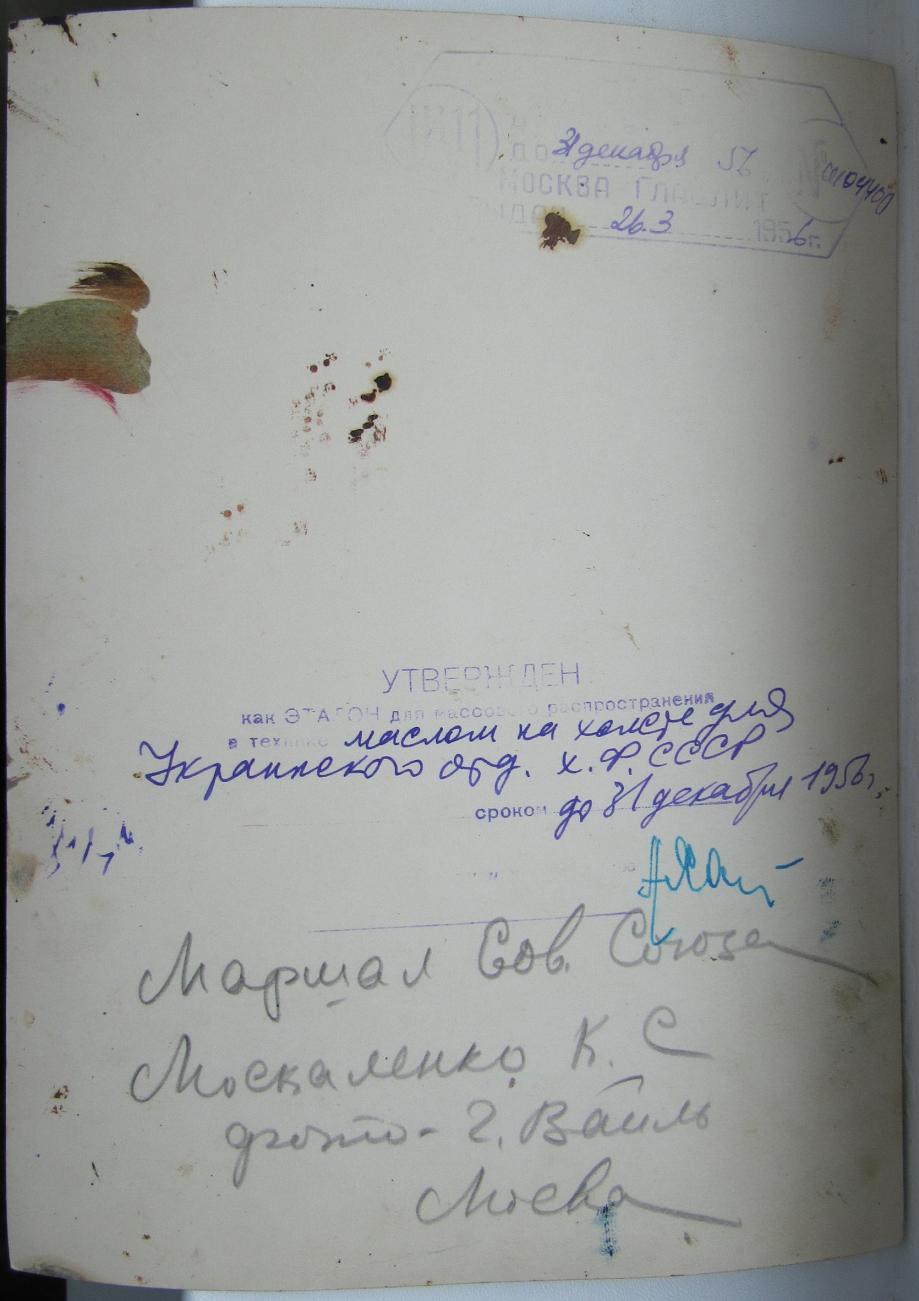 до 31 декабря 56
МОСКВА ГЛАВЛИТ
26.3 1956 г.
УТВЕРЖДЕН
как ЭТАЛОН для массового распространения
в технике маслом на холсте для
Украинского отд. х. Ф. СССР
сроком до 31 декабря 1956 г.
Маршал Сов. Союза
Москаленко К. С
фото - Г. Вайль
Москва